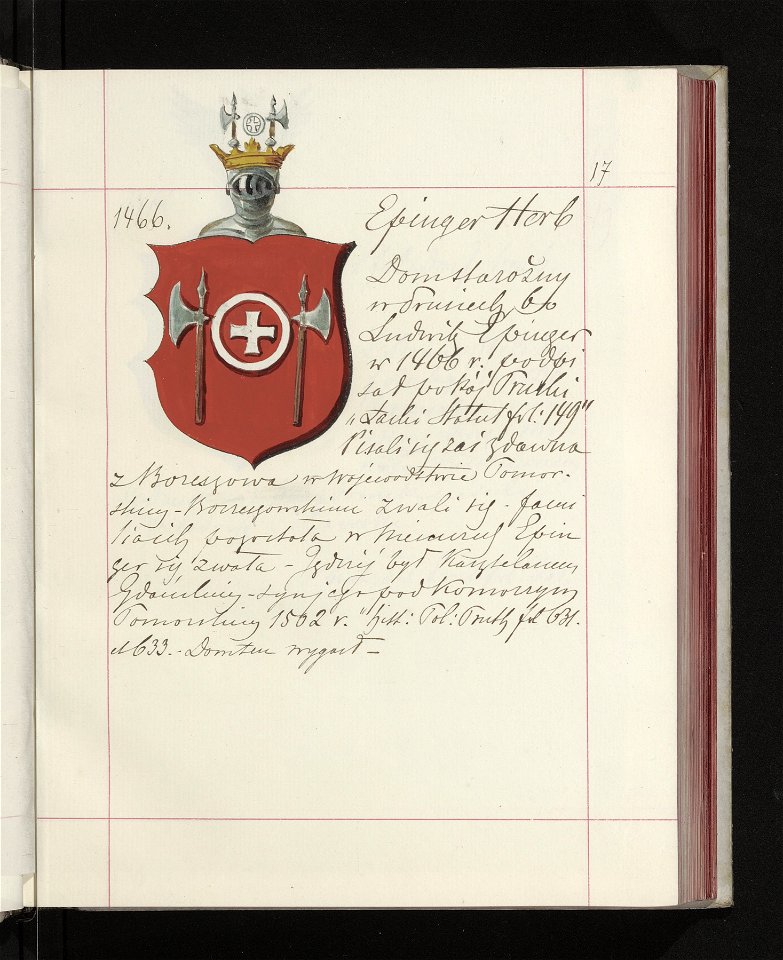 17
1466.
Epinger Herb
Dom starożny
w Prusiech, bo
Ludwik Epinger
w 1466 r. podpi
sał pokój Pruski
"Łaski Statut fol: 149"
Pisali się zaś zdawna
z Boreszowa w Wojewodstwie Pomor-
skiey - Boreszowskiemi zwali się - fami
lia ich pozostała w Niemczech Epin
ger się zwała - Jeden był Kasztelanem
Gdańskim - syn jego podkomorzym
Pomorskim 1502 r. "hist: Pol: Prusk fol 631.
et 633. - Dom ten wygasł -